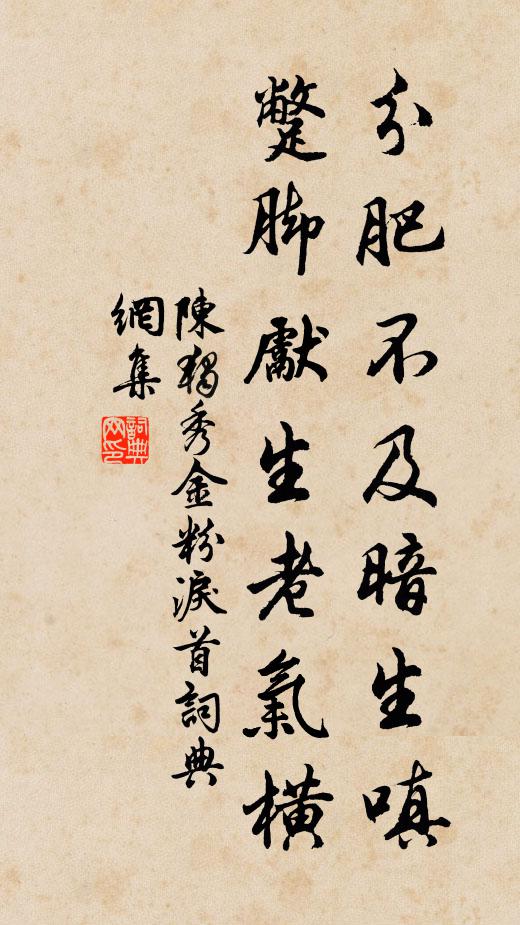 分肥不及暗生嗔
蹩脚獻生老氣橫
陳獨秀金粉淚首詞典
網集
詞典網印